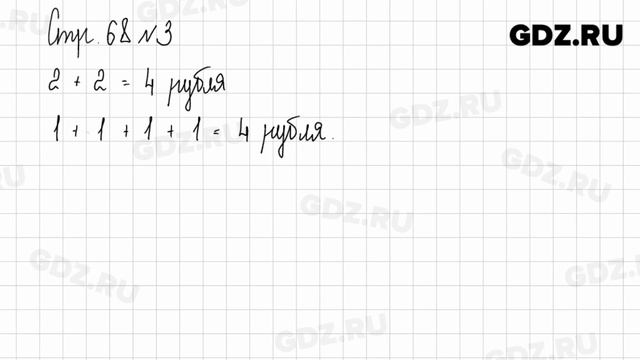 Стр. 68 №3
GDZ.RU
2 + 2 = 4 рубля
1 + 1 + 1 + 1 = 4 рубля.
GDZ.RU
GDZ.RU
GDZ.RU
GDZ.RU
GDZ.RU
GDZ.RU
GDZ.RU
GDZ.RU